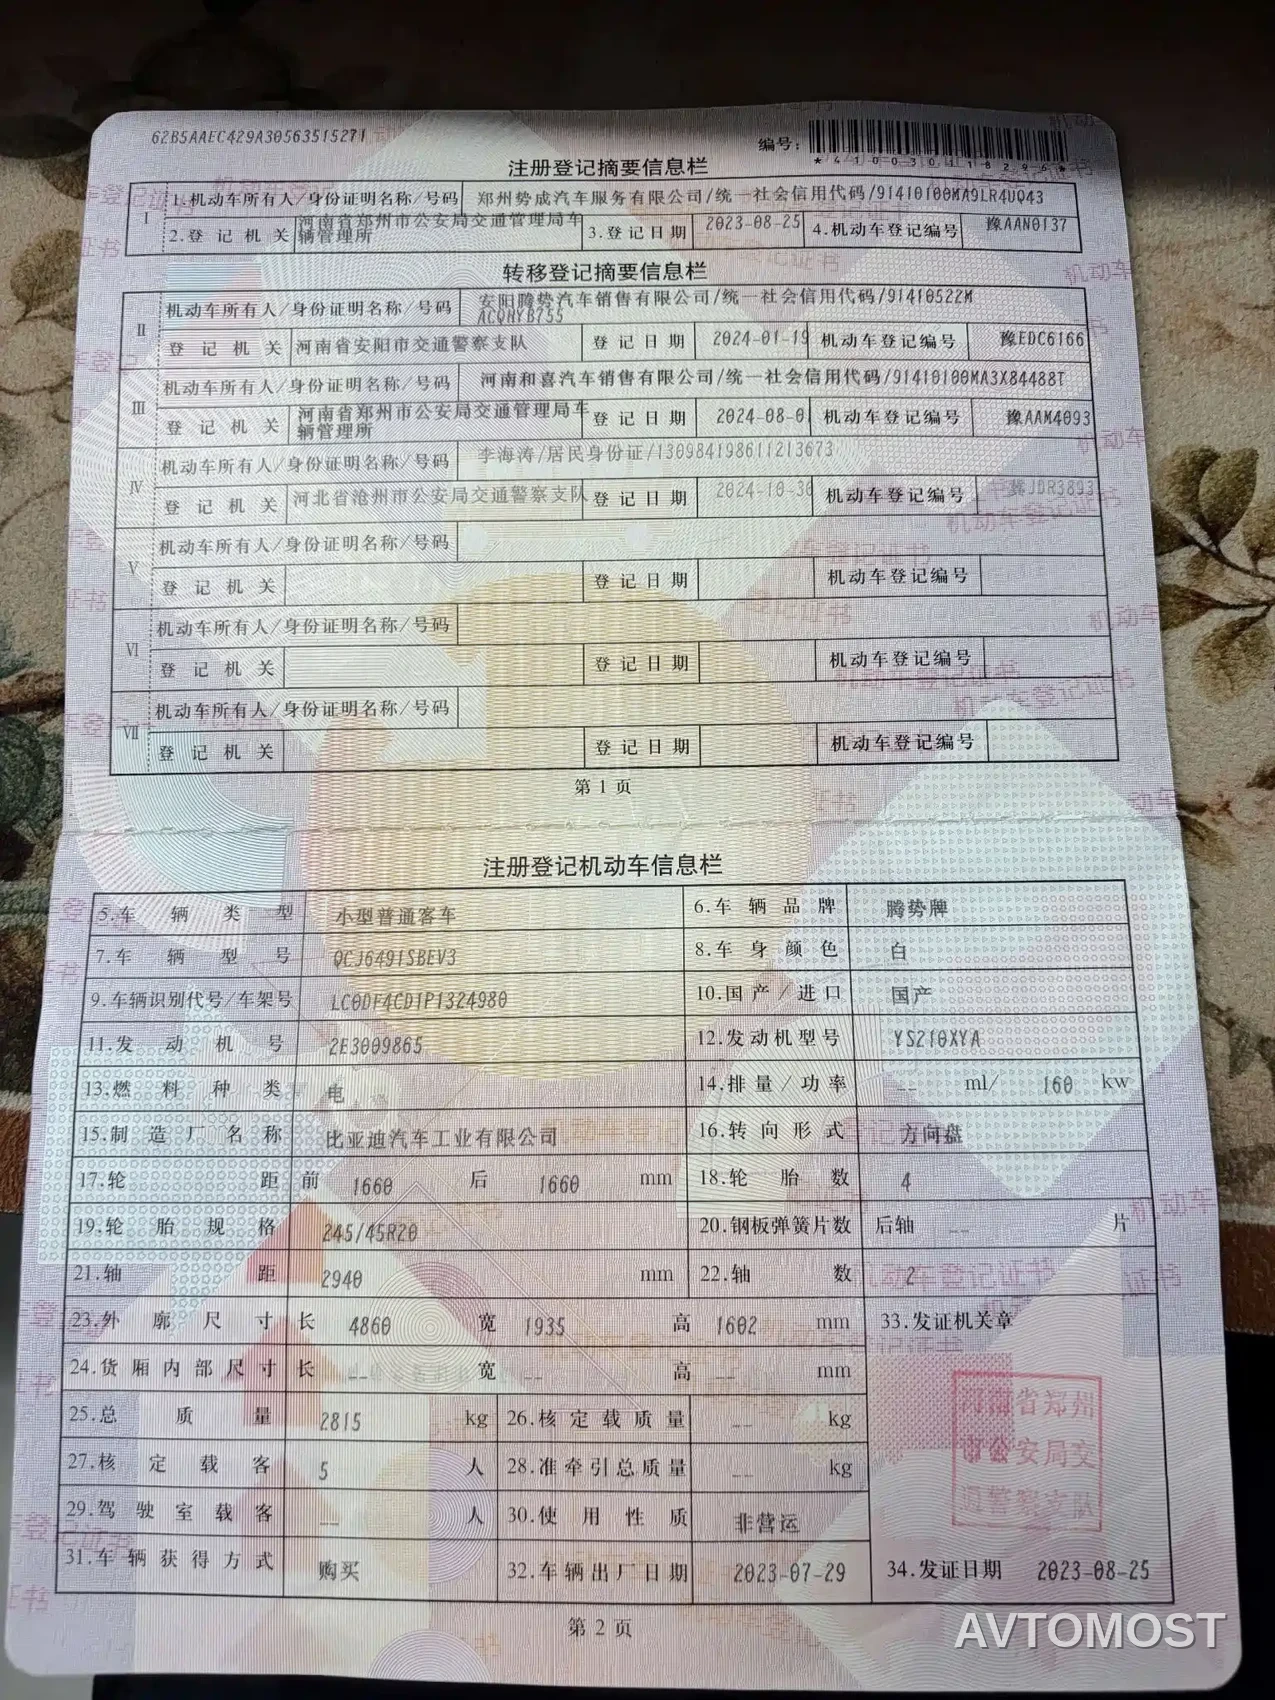 62B5AAEC429A30563515271
编号:
*410030118296*
注册登记摘要信息栏
I
1.机动车所有人/身份证明名称/号码 郑州势成汽车服务有限公司/统一社会信用代码/91410100MA9LR4UQ43
2.登记机关 河南省郑州市公安局交通管理局车辆管理所 3.登记日期 2023-08-25 4.机动车登记编号 豫AAN0137
转移登记摘要信息栏
II
机动车所有人/身份证明名称/号码 安阳腾势汽车销售有限公司/统一社会信用代码/91410522M
ACQHYB755
登记机关 河南省安阳市交通警察支队 登记日期 2024-01-19 机动车登记编号 豫EDC6166
III
机动车所有人/身份证明名称/号码 河南和喜汽车销售有限公司/统一社会信用代码/91410100MA3X84488T
登记机关 河南省郑州市公安局交通管理局车辆管理所 登记日期 2024-08-0 机动车登记编号 豫AAM4093
IV
机动车所有人/身份证明名称/号码 李海涛/居民身份证/130984198611213673
登记机关 河北省沧州市公安局交通警察支队 登记日期 2024-10-30 机动车登记编号 冀JDR3893
V
机动车所有人/身份证明名称/号码
登记机关 登记日期 机动车登记编号
VI
机动车所有人/身份证明名称/号码
登记机关 登记日期 机动车登记编号
VII
机动车所有人/身份证明名称/号码
登记机关 登记日期 机动车登记编号
第 1 页
注册登记机动车信息栏
5.车辆类型 小型普通客车 6.车辆品牌 腾势牌
7.车辆型号 QCJ6491SBEV3 8.车身颜色 白
9.车辆识别代号/车架号 LC0DF4CD1P1324980 10.国产/进口 国产
11.发动机号 2E3009865 12.发动机型号 YS210XYA
13.燃料种类 电 14.排量/功率 -- ml/ 160 kw
15.制造厂名称 比亚迪汽车工业有限公司 16.转向形式 方向盘
17.轮距 前 1660 后 1660 mm 18.轮胎数 4
19.轮胎规格 245/45R20 20.钢板弹簧片数 后轴 -- 片
21.轴距 2940 mm 22.轴数 2
23.外廓尺寸 长 4860 宽 1935 高 1602 mm 33.发证机关章
24.货厢内部尺寸 长 -- 宽 -- 高 -- mm
25.总质量 2815 kg 26.核定载质量 -- kg
27.核定载客 5 人 28.准牵引总质量 -- kg
29.驾驶室载客 -- 人 30.使用性质 非营运
河南省郑州
市公安局交
通警察支队
31.车辆获得方式 购买 32.车辆出厂日期 2023-07-29 34.发证日期 2023-08-25
第 2 页
AVTOMOST